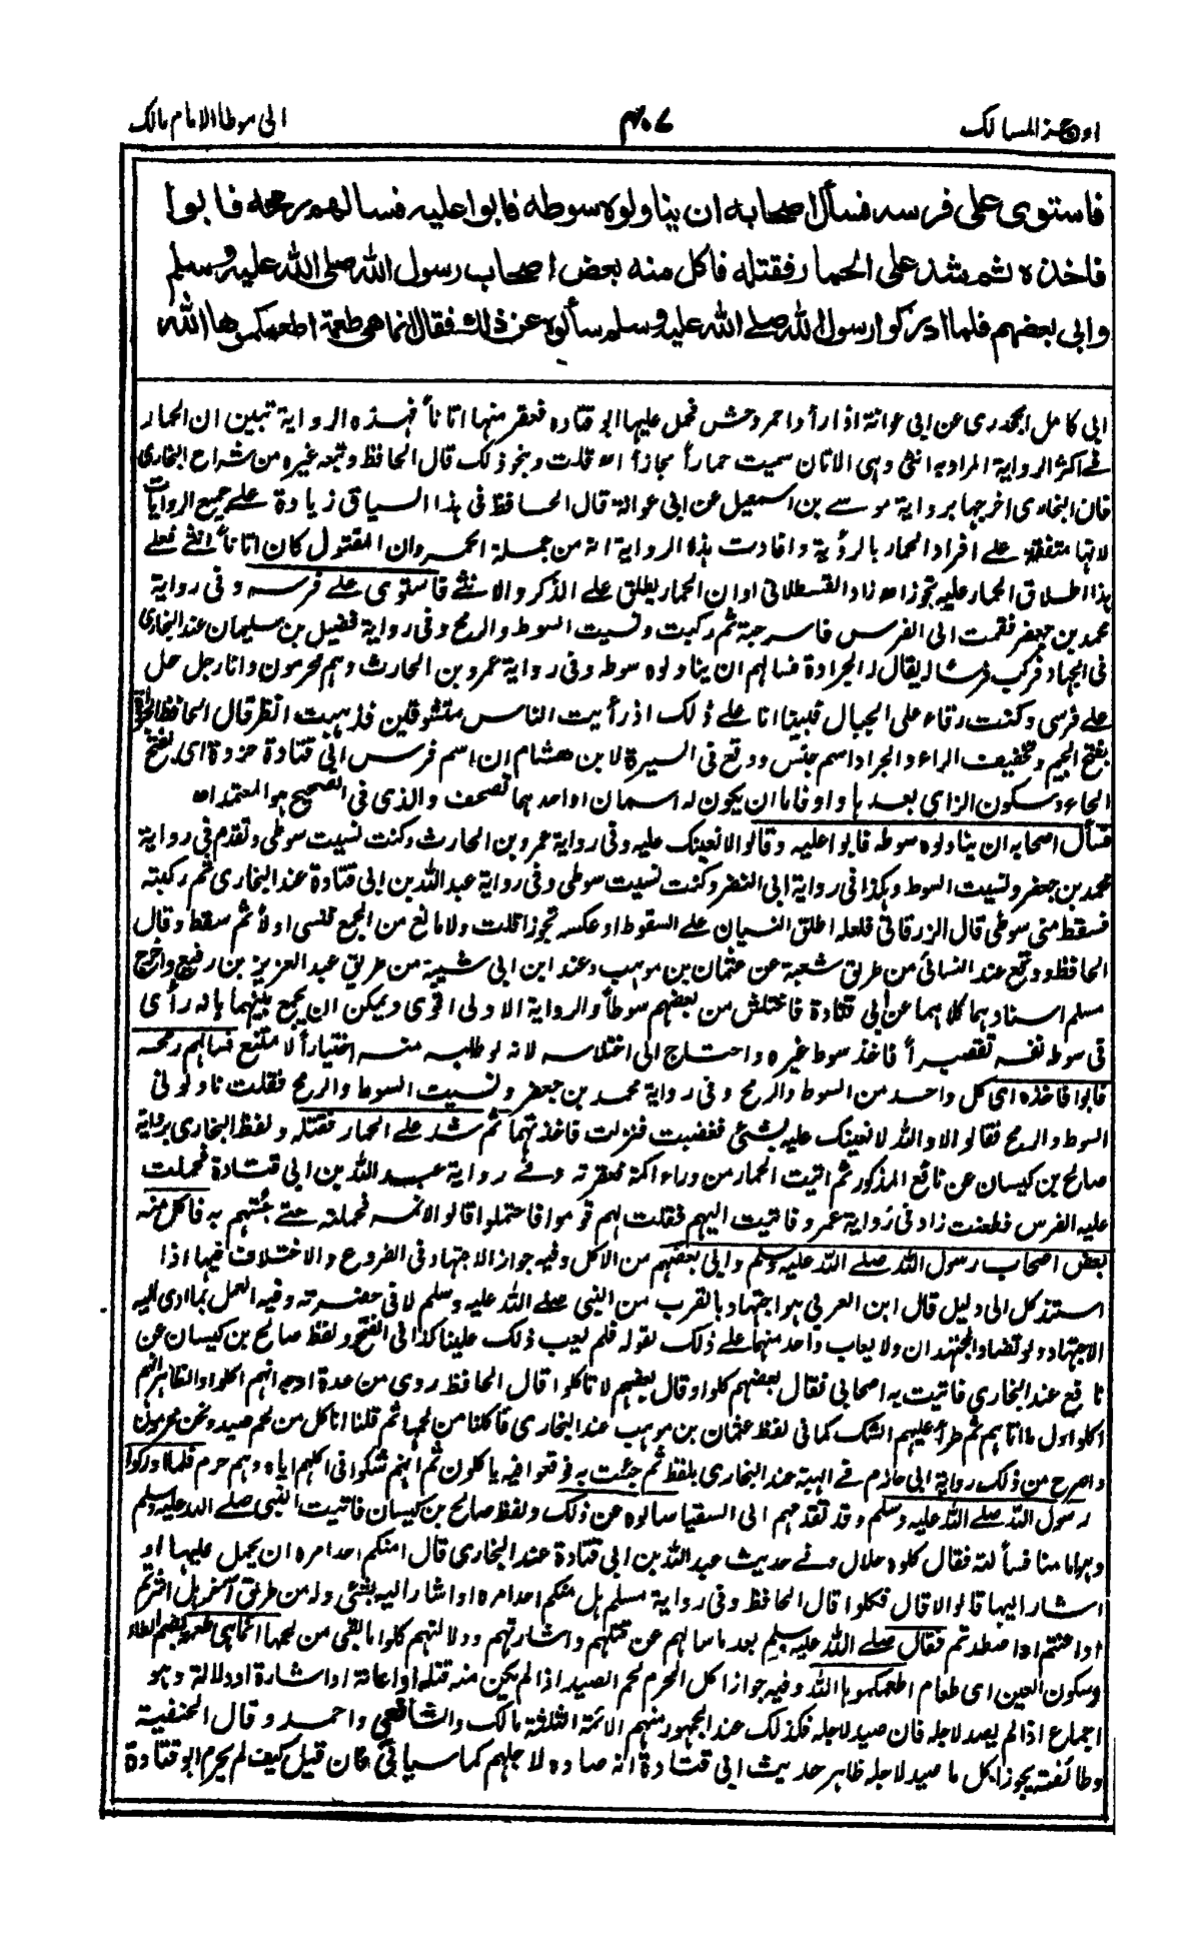 اوجز المسالك
٤٠٧
الى موطا الامام مالك
فاستوى على فرسه فسأل اصحابه ان يناولوه سوطه فابوا عليه فسالهم رمحه فابوا
فاخذه ثم شد على الحمار فقتله فاكل منه بعض اصحاب رسول الله صلى الله عليه وسلم
وابى بعضهم فلما ادركوا رسول الله صلى الله عليه وسلم سألوه عن ذلك فقال انما هى طعمة اطعمكموها الله
ابى كامل الجحدرى عن ابى عوانة اذ رأوا حمر وحش فحمل عليها ابو قتاده فعقر منها اتانا فهذه الرواية تبين ان الحمار
فى اكثر الرواية المراد به انثى وهى الاتان سميت حمارا مجازا اه قلت وبنحو ذلك قال الحافظ وتبعه غيره من شراح البخارى
فان البخارى اخرجها برواية موسى بن اسمعيل عن ابى عوانة قال الحافظ فى هذا السياق زيادة على جميع الروايات
لانها متفقة على افراد الحمار بالرؤية وافادت هذه الرواية انه من جملة الحمر وان المقتول كان اتانا انثى فعلى
هذا اطلاق الحمار عليه تجوز اه زاد القسطلانى او ان الحمار يطلق على الذكر والانثى فاستوى على فرسه وفى رواية
محمد بن جعفر فقمت الى الفرس فاسرجته ثم ركبت ونسيت السوط والرمح وفى رواية فضيل بن سليمان عند البخارى
فى الجهاد فركب فرسا له يقال له الجرادة فسالهم ان يناولوه سوطه وفى رواية عمرو بن الحارث وهم محرمون وانا رجل حل
على فرسى وكنت رقاء على الجبال فبينا انا على ذلك اذ رأيت الناس متشوفين فذهبت انظر قال الحافظ الجرادة
بفتح الجيم وتخفيف الراء والجراد اسم جنس ووقع فى السيرة لابن هشام ان اسم فرس ابى قتادة حزوة اى بفتح
الحاء وسكون الزاى بعدها واو فاما ان يكون له اسمان او احدهما تصحف والذى فى الصحيح هو المعتمد اه
فسأل اصحابه ان يناولوه سوطه فابوا عليه وقالوا لا نعينك عليه وفى رواية عمرو بن الحارث وكنت نسيت سوطى وتقدم فى رواية
محمد بن جعفر ونسيت السوط وهكذا فى رواية ابى النضر وكنت نسيت سوطى وفى رواية عبد الله بن ابى قتادة عند البخارى ثم ركبته
فسقط منى سوطى قال الزرقانى فلعله اطلق النسيان على السقوط او عكسه تجوزا قلت ولا مانع من الجمع فنسى اولا ثم سقط وقال
الحافظ ووقع عند النسائى من طريق شعبة عن عثمان بن موهب وعند ابن ابى شيبة من طريق عبد العزيز بن رفيع واخرج
مسلم اسنادهما كلاهما عن ابى قتادة فاختلس من بعضهم سوطا والرواية الاولى اقوى ويمكن ان يجمع بينهما بانه رأى
فى سوط نفسه تقصيرا فاخذ سوط غيره واحتاج الى اختلاسه لانه لو طلبه منه اختيارا لامتنع فسالهم رمحه
فابوا فاخذه اى كل واحد من السوط والرمح وفى رواية محمد بن جعفر ونسيت السوط والرمح فقلت ناولونى
السوط والرمح فقالوا لا والله لا نعينك عليه بشئ فغضبت فنزلت فاخذتهما ثم شد على الحمار فقتله ولفظ البخارى برواية
صالح بن كيسان عن نافع المذكور ثم اتيت الحمار من وراء اكمة فعقرته وفى رواية عبد الله بن ابى قتادة فحملت
عليه الفرس فطعنت زاد فى رواية عمرو فاتيت اليهم فقلت لهم قوموا فاحتملوا قالوا لا نمسه فحملته حتى جئتهم به فاكل منه
بعض اصحاب رسول الله صلى الله عليه وسلم وابى بعضهم من الاكل وفيه جواز الاجتهاد فى الفروع والاختلاف فيها اذا
استند كل الى دليل قال ابن العربى هو اجتهاد بالقرب من النبى صلى الله عليه وسلم لا فى حضرته وفيه العمل بما ادى اليه
الاجتهاد ولو تضاد المجتهدان ولا يعاب واحد منهما على ذلك لقوله فلم يعب ذلك علينا كذا فى الفتح ولفظ صالح بن كيسان عن
نافع عند البخارى فاتيت به اصحابى فقال بعضهم كلوا وقال بعضهم لا تاكلوا قال الحافظ روى من عدة اوجه انهم اكلوا والظاهر انهم
اكلوا اول ما اتاهم ثم طرأ عليهم الشك كما فى لفظ عثمان بن موهب عند البخارى فاكلنا من لحمها ثم قلنا اناكل من لحم صيد ونحن محرمون
واصرح من ذلك رواية ابى حازم فى الهبة عند البخارى بلفظ ثم جئت به فوقعوا فيه ياكلون ثم انهم شكوا فى اكلهم اياه وهم حرم فلما ادركوا
رسول الله صلى الله عليه وسلم وقد تقدمهم الى السقيا سالوه عن ذلك ولفظ صالح بن كيسان فاتيت النبى صلى الله عليه وسلم
وهو امامنا فسألته فقال كلوه حلال وفى حديث عبد الله بن ابى قتادة عند البخارى قال امنكم احد امره ان يحمل عليها او
اشار اليها قالوا لا قال فكلوا قال الحافظ وفى رواية مسلم هل منكم احد امره او اشار اليه بشئ وله من طريق آخر هل اشرتم
او اعنتم او اصطدتم فقال صلى الله عليه وسلم بعد ما سالهم عن قتلهم واشارتهم ودلالتهم كلوا ما بقى من لحمها انما هى طعمة بضم الطاء
وسكون العين اى طعام اطعمكموها الله وفيه جواز اكل المحرم لحم الصيد اذا لم يكن منه قتله او اعانة او اشارة او دلالة وهو
اجماع اذا لم يصد لاجله فان صيد لاجله فكذلك عند الجمهور منهم الائمة الثلثة مالك والشافعى واحمد وقال الحنفية
وطائفة يجوز اكل ما صيد لاجله ظاهر حديث ابى قتادة انه صاده لاجلهم كما سياتى فان قيل كيف لم يحرم ابو قتادة